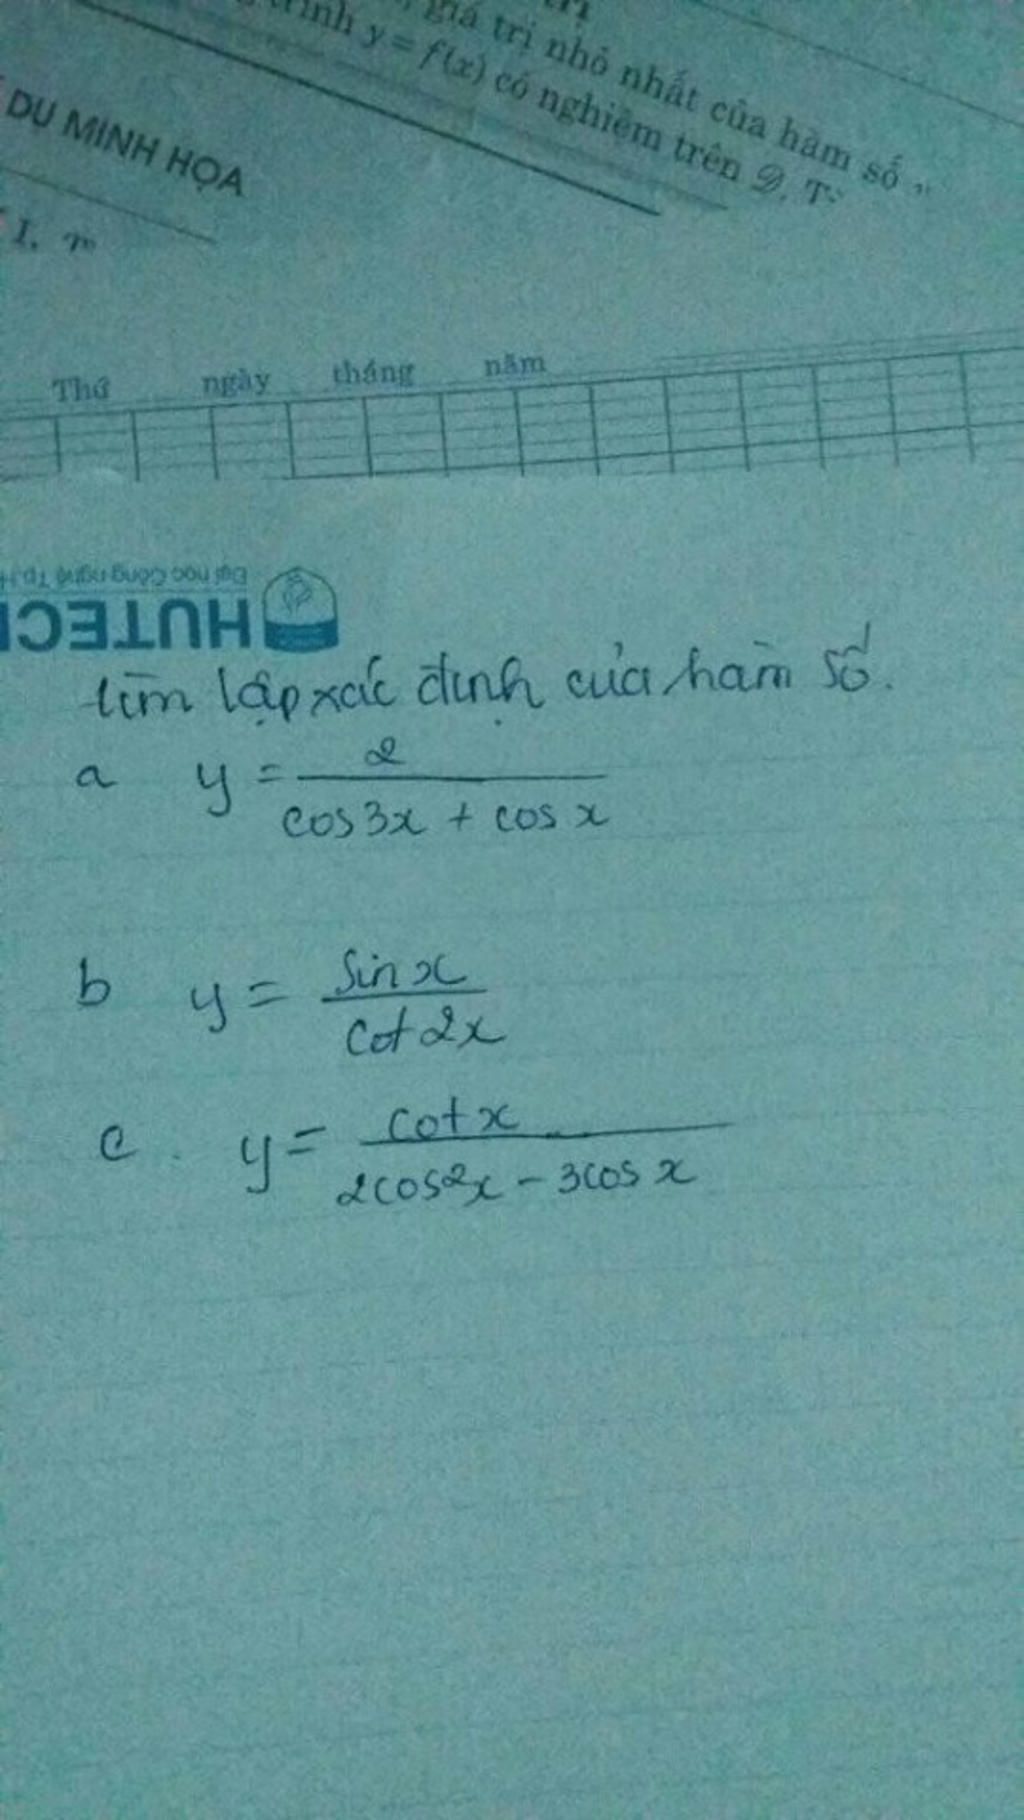 giá trị nhỏ nhất của hàm số
trình y = f(x) có nghiệm trên 𝒟.
DỤ MINH HỌA
I.
Thứ ngày tháng năm
Đại học Công nghệ Tp.H
HUTEC
tìm tập xác định của hàm số.
a y = 2 / (cos3x + cos x)
b y = sin x / cot 2x
c. y = cot x / (2cos2x - 3cos x)